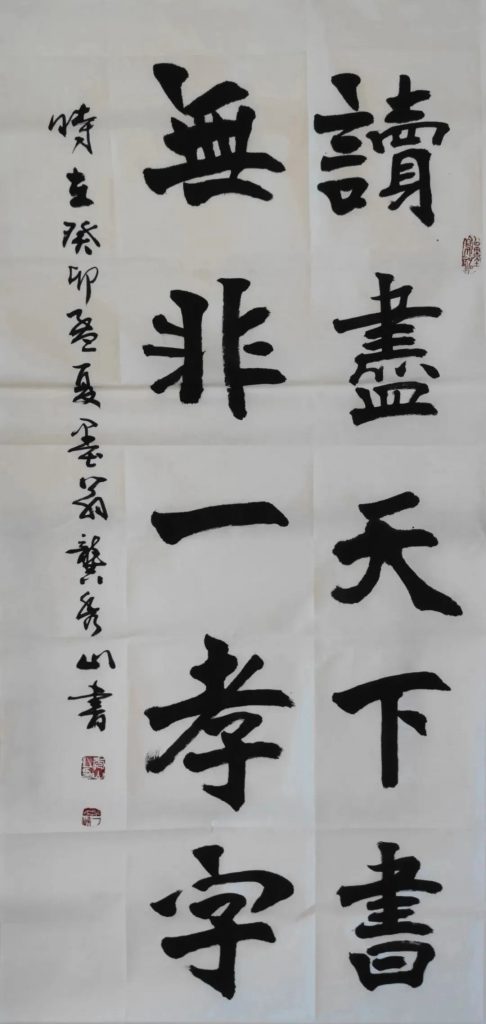 讀盡天下書
無非一孝字
時在癸卯孟夏墨翁龔秀山書